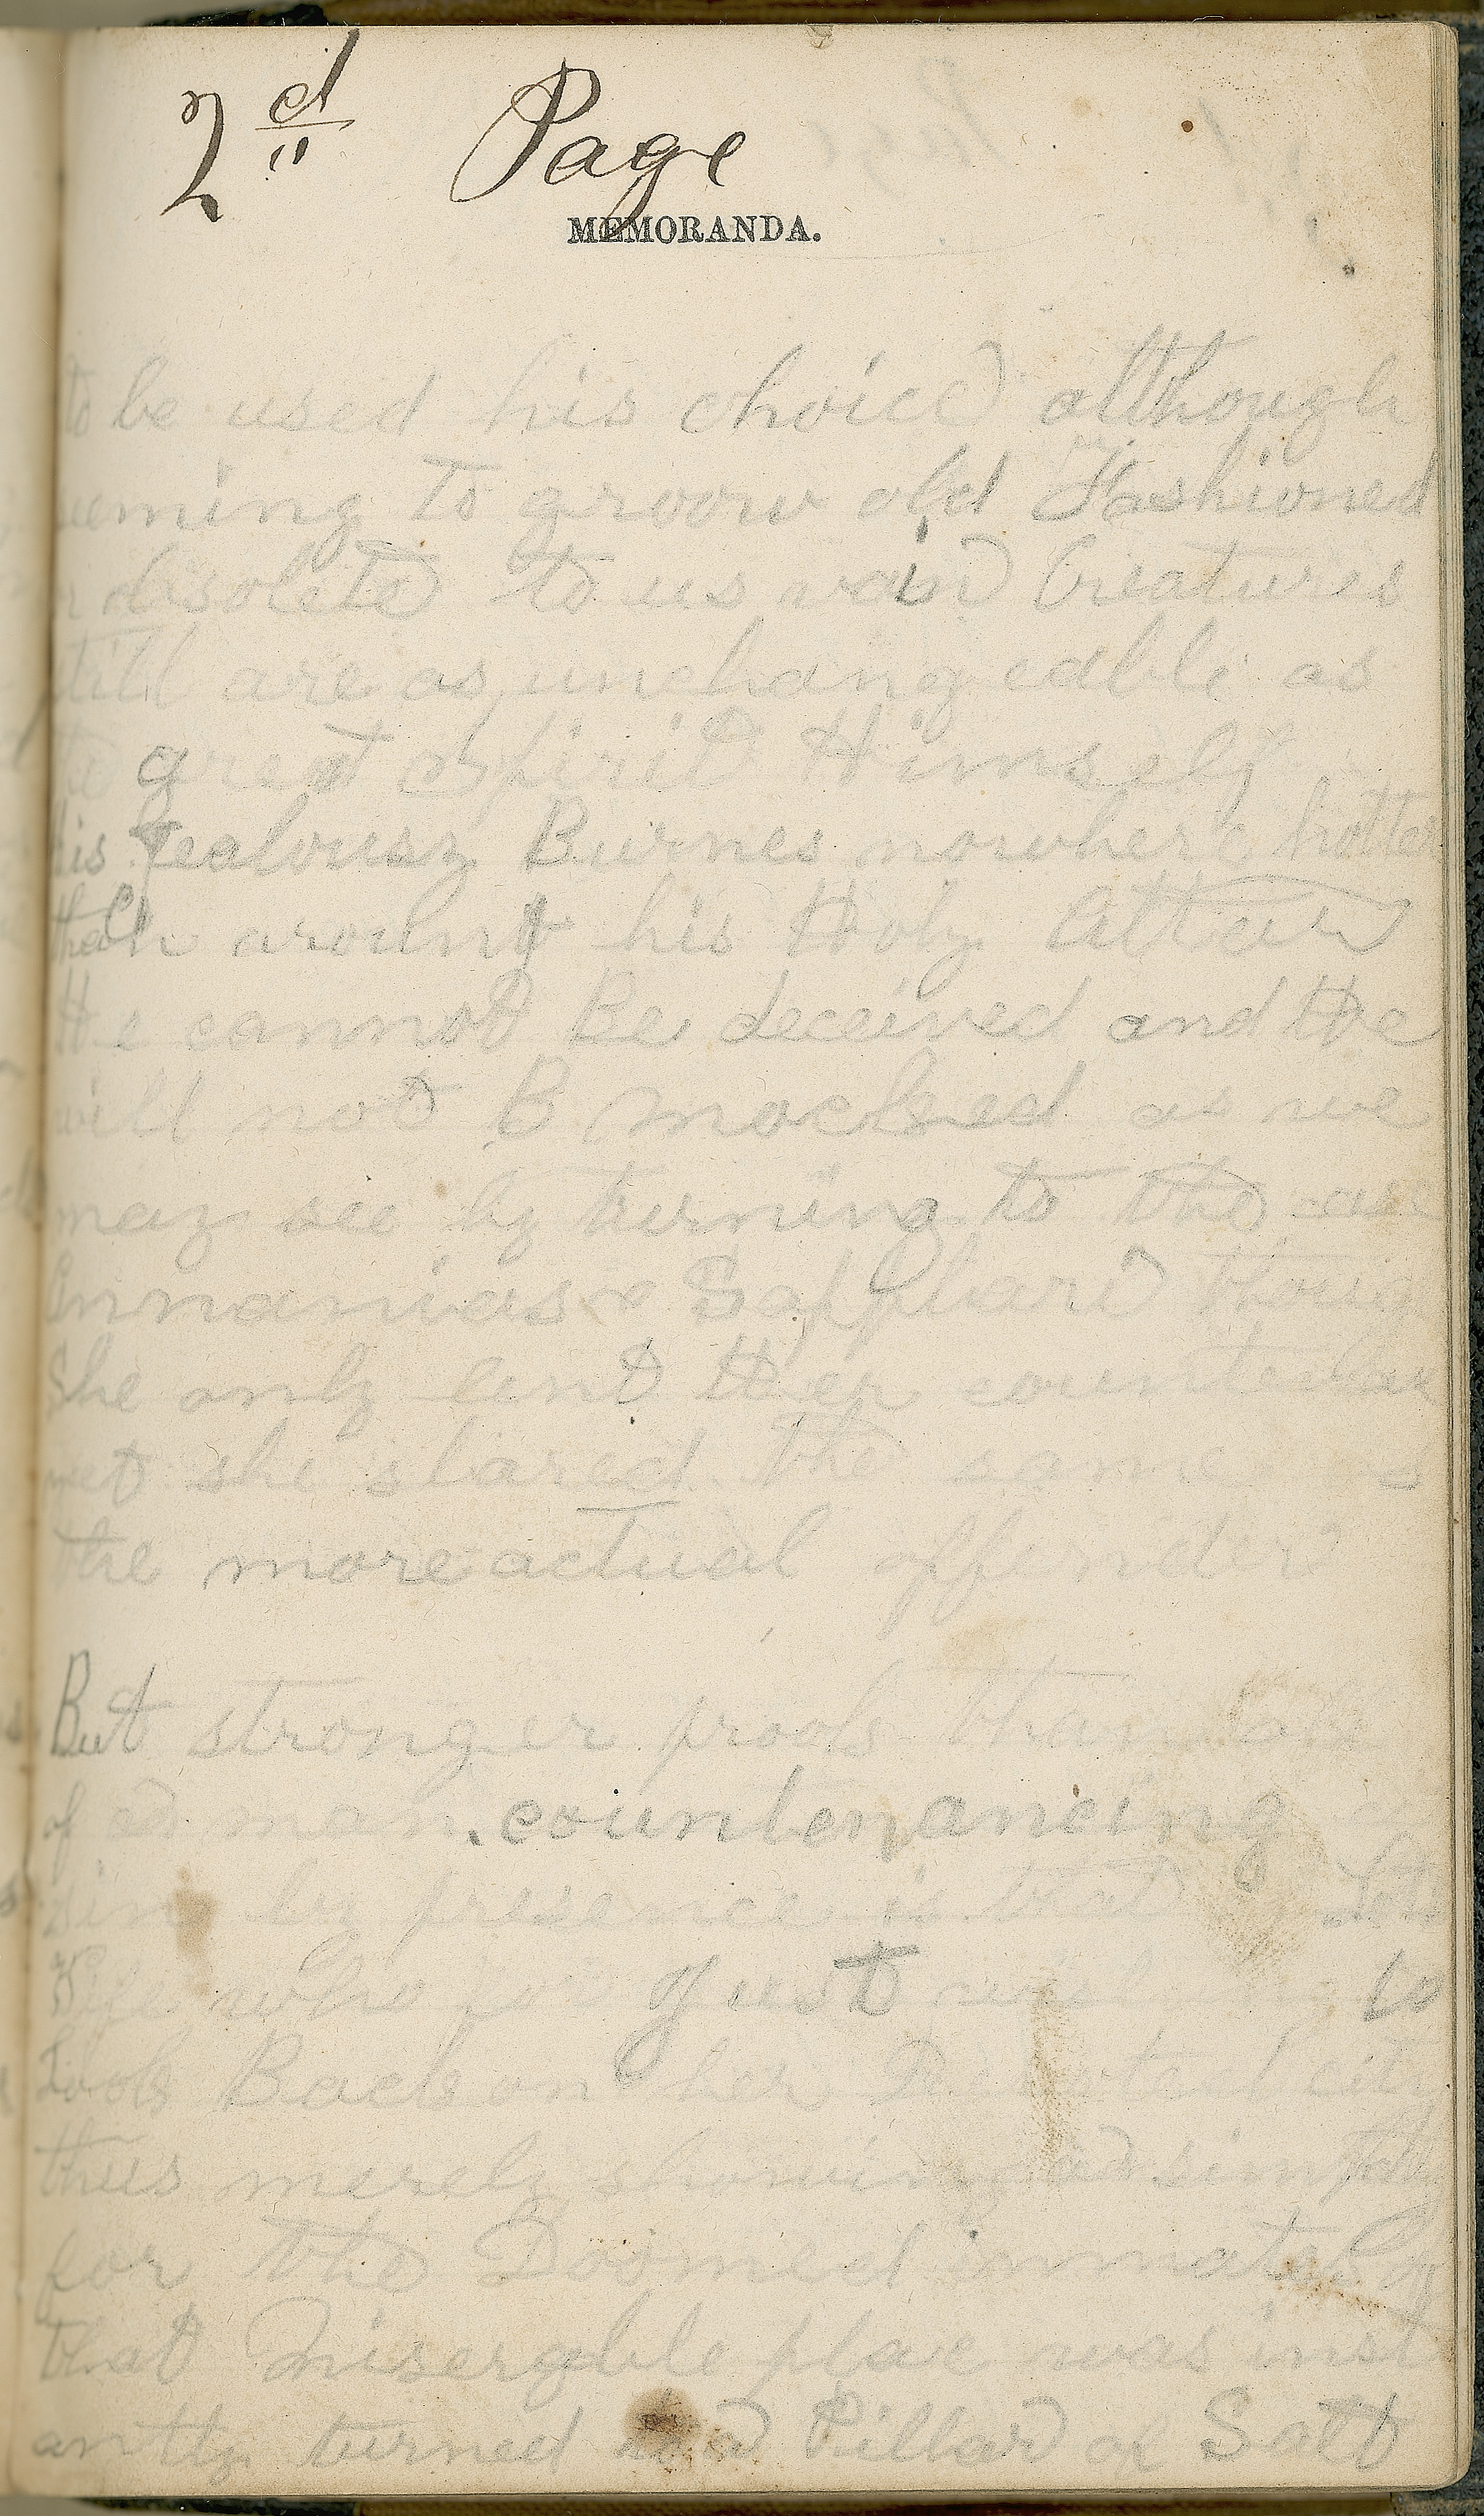 2d Page
MEMORANDA.
to be used his choice although
seeming to groow old Fashioned
or obsolete to us vain Creatures
still are as unchangeable as
the great Spirit Himself
his Jealousy Burnes nowhere hotter
than around his Holy Altar
He cannot Be deceived and He
will not B mocked as we
may see by turning to the case
Annanias & Sapphari though
she only lent Her
yet she shared the same as
the more actual offender
But stronger proof than
of a man countenancing
Sin by presence is that Lots
Wife who for just to
Look Back on her City
thus merely showing a simpathy
for the Doomed inmates of
that Miserable place was inst
antly turned to a Pillar of Salt